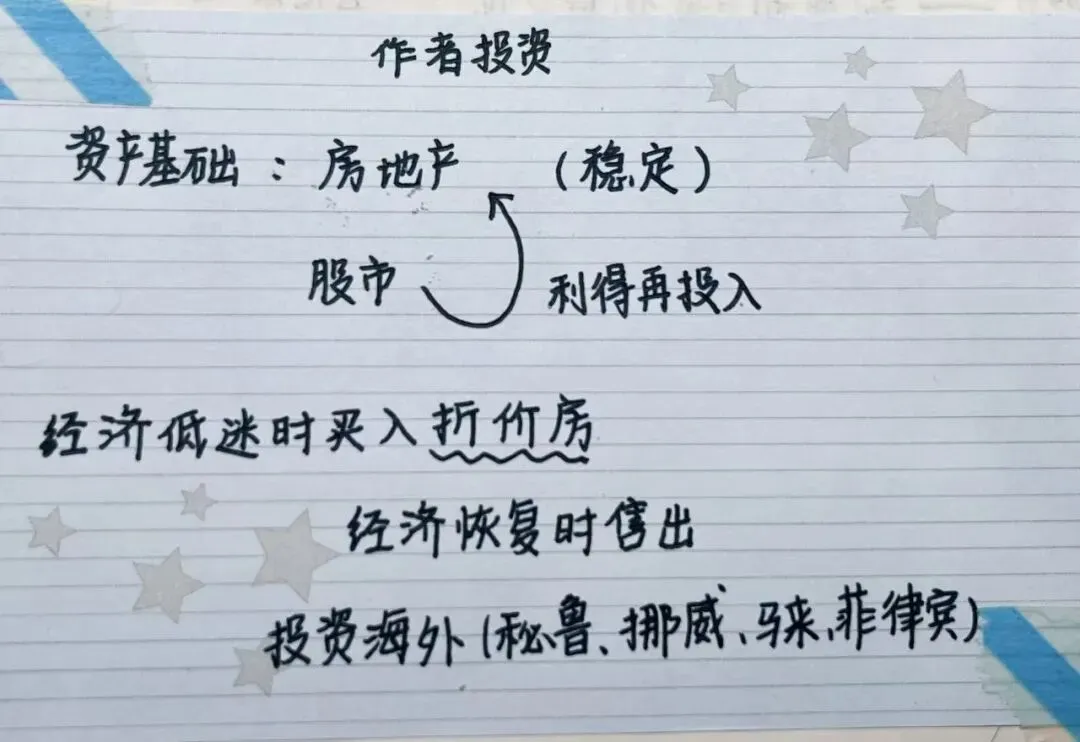 作者投资
资产基础：房地产 （稳定）
股市 利得再投入
经济低迷时买入折价房
经济恢复时售出
投资海外(秘鲁、挪威、马来、菲律宾)